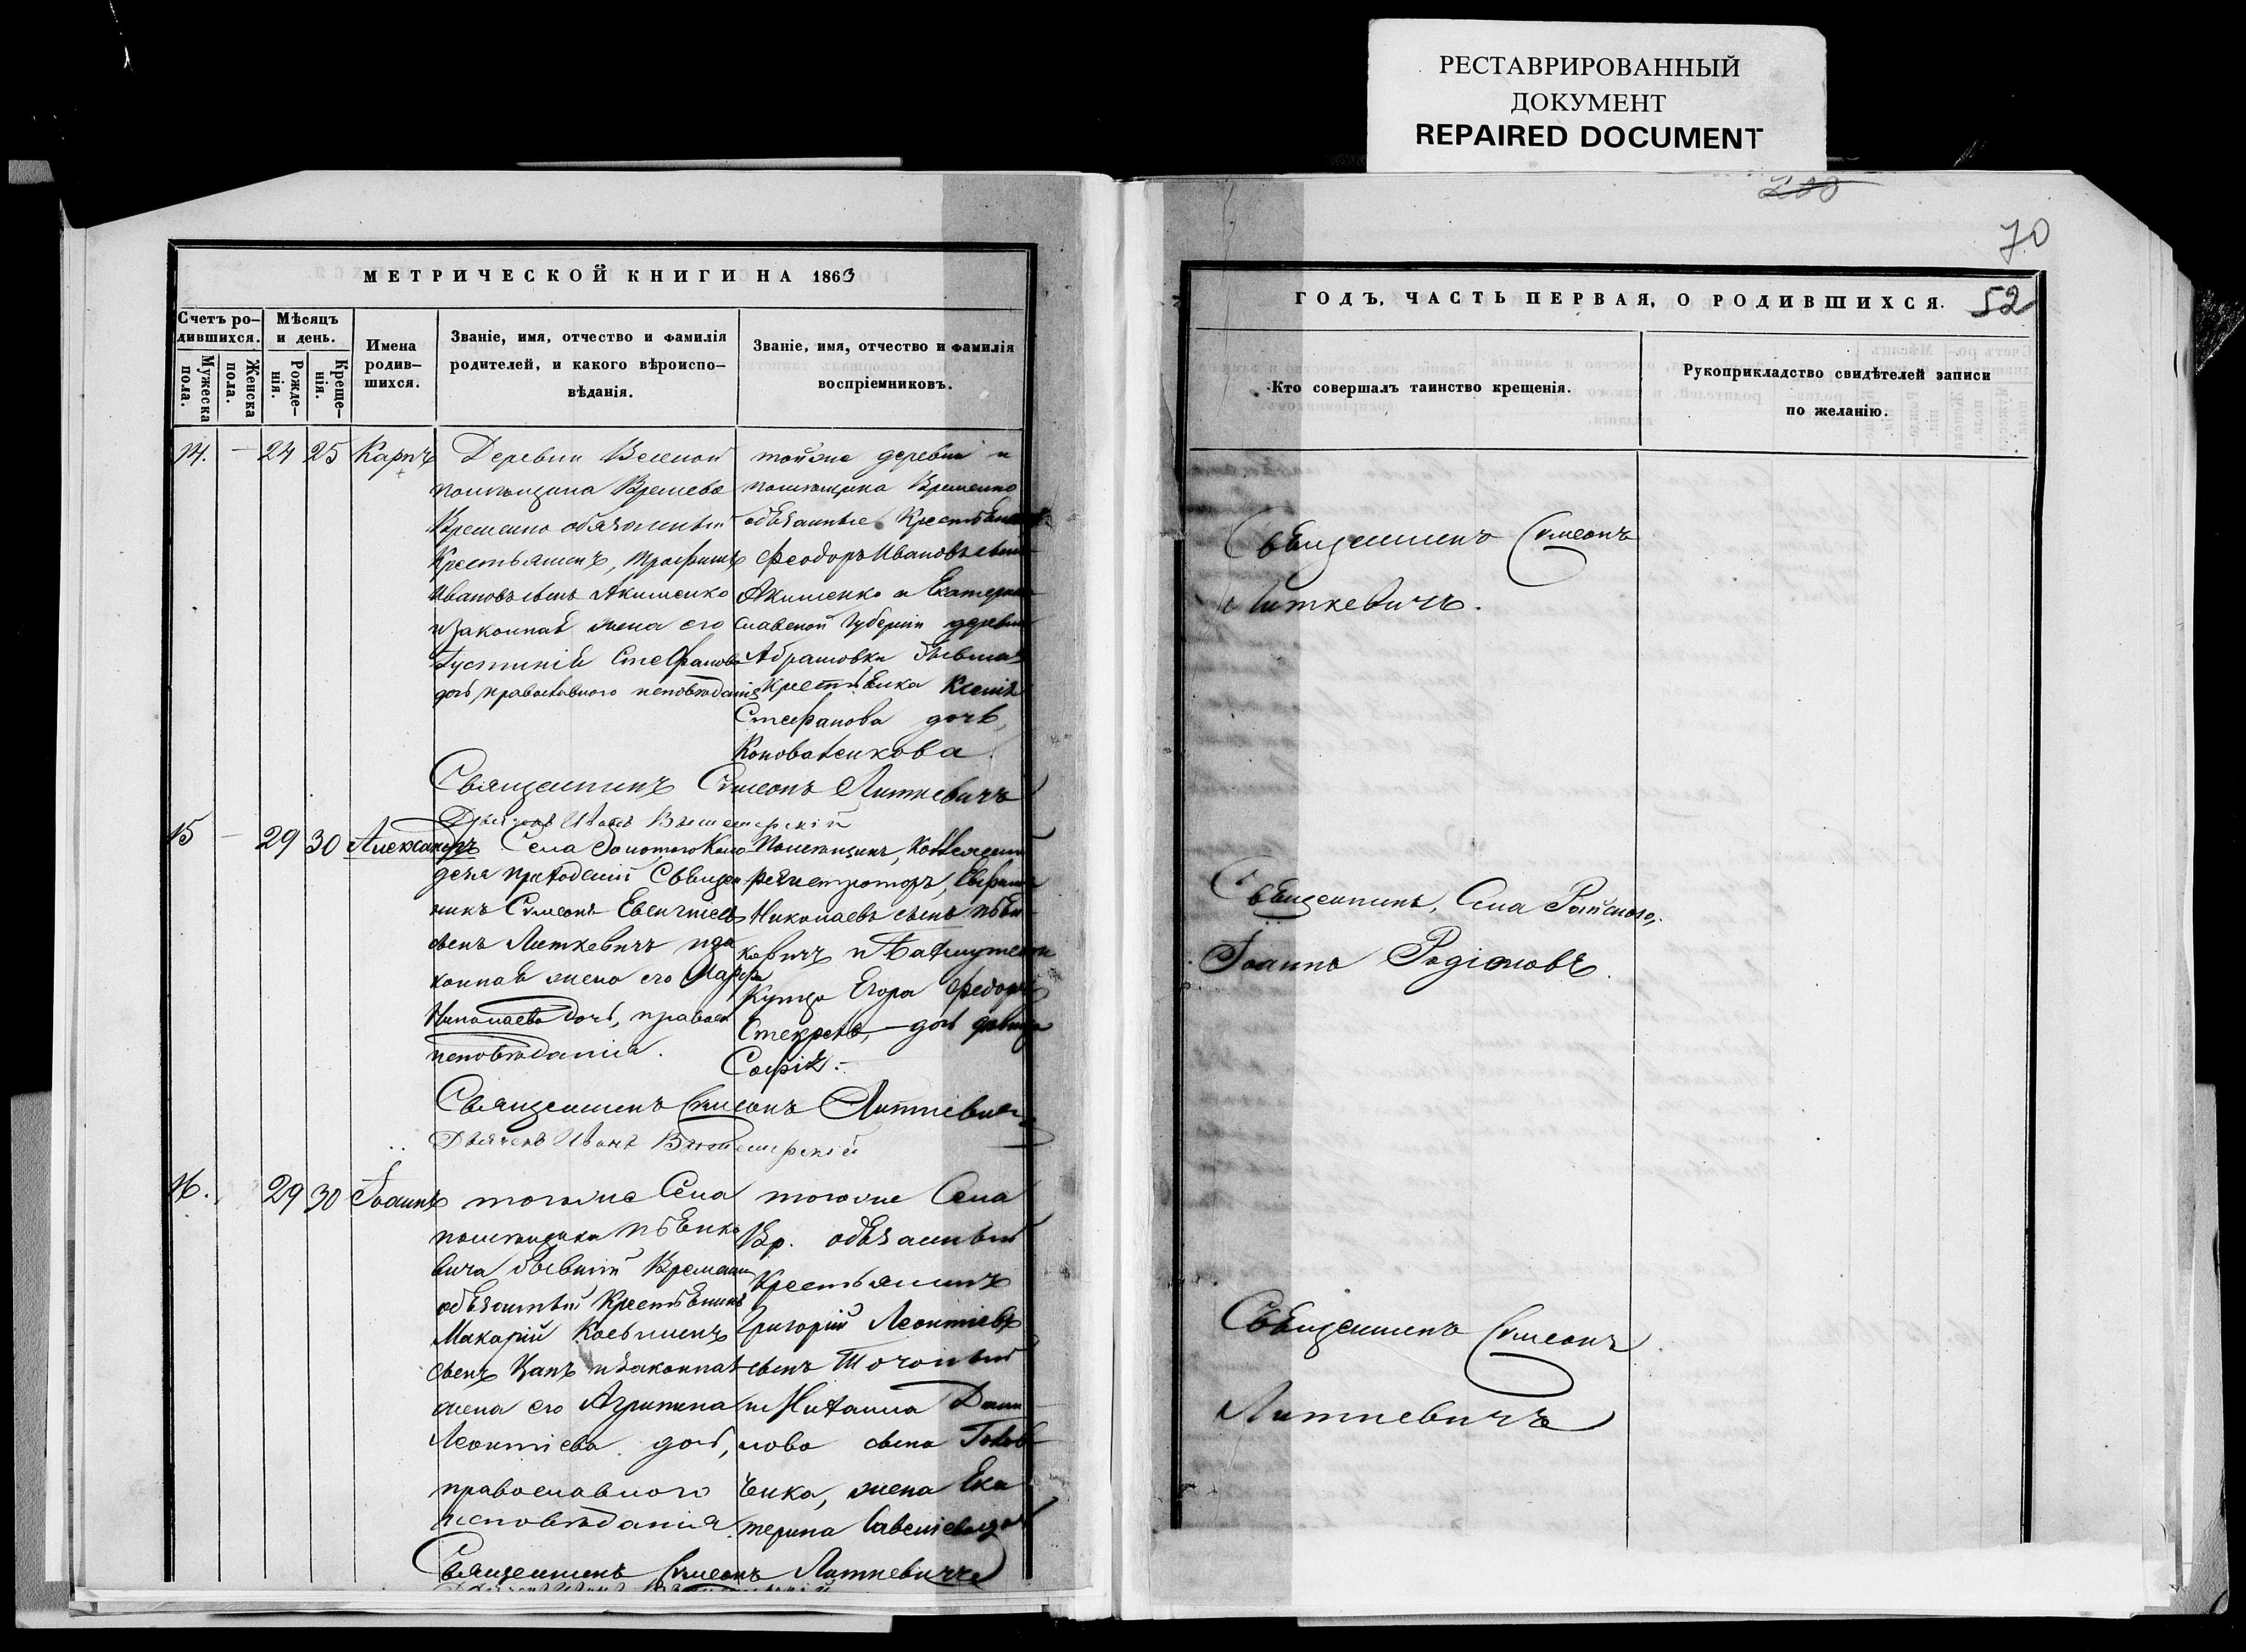 РЕСТАВРИРОВАННЫЙ
ДОКУМЕНТ
REPAIRED DOCUMENT
70
МЕТРИЧЕСКОЙ КНИГИ НА 1863
Счетъ ро-
дившихся.
Мужеска
пола.
Женска
пола.
Мѣсяцъ
и день.
Рожде-
нія.
Креще-
нія.
Имена
родив-
шихся.
Званіе, имя, отчество и фамилія
родителей, и какого вѣроиспо-
вѣданія.
Званіе, имя, отчество и фамилія
воспріемниковъ.
14. — 24 25 Карпъ
Деревни
помѣщика
Временно обязанный
Крестьянинъ, Трофимъ
Ивановъ сынъ Акименко
и законная жена его
Іустинія Стефанова
дочь, православнаго исповѣданія
тойже деревни и
помѣщика Временно
обязанные Крестьяне
Феодоръ Ивановъ сынъ
Акименко и Екатерино
славской Губерніи деревни
Абрамовки бывшая
крестьянка Ксенія
Стефанова дочь,
Священникъ Симеонъ Литкевичъ
Дьячекъ Иванъ
15 — 29 30 Александръ
Села Золотого Коло
дезя приходскій Священ
никъ Симеонъ
сынъ Литкевичъ и за
конная жена его Марфа
Николаева дочь, правосл
исповѣданія.
Помѣщикъ, Коллежскій
регистраторъ,
Николаевъ сынъ
и Бахмутскаго
Купца Егора Федоров
дочь дѣвица
Софія.
Священникъ Симеонъ Литкевичъ
Дьячекъ Иванъ
16. 29 30 Іоаннъ
тогоже Села
помѣщика
вича бывшій Временно
обязанный Крестьянинъ
Макарій
сынъ Цапъ и законная
жена его Агрипина
Леонтіева дочь,
православнаго
исповѣданія.
тогоже Села
Вр. обязанный
Крестьянинъ
Григорій Леонтіевъ
сынъ Точоный
и Михаила Дани
лова сына Голов
ченка, жена Ека
терина Савеліева дочь
Священникъ Симеонъ Литкевичъ
ГОДЪ, ЧАСТЬ ПЕРВАЯ, О РОДИВШИХСЯ. 52
Кто совершалъ таинство крещенія.
Рукоприкладство свидѣтелей записи
по желанію.
Священникъ Симеонъ
Литкевичъ.
Священникъ, Села Райскаго,
Іоаннъ Родіоновъ.
Священникъ Симеонъ
Литкевичъ